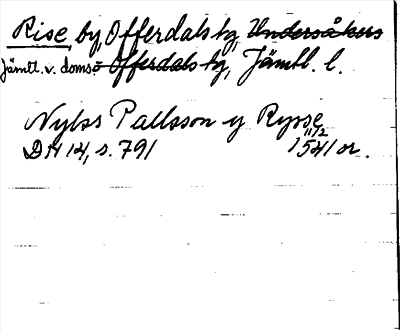 Rise, by, Offerdals tg, Undersåkers
Jämtl. v. doms- o Offerdals tg, Jämtl. l.
Nylss Pallsson y Rysse
DN 14, s. 791 11/2 1541 or.